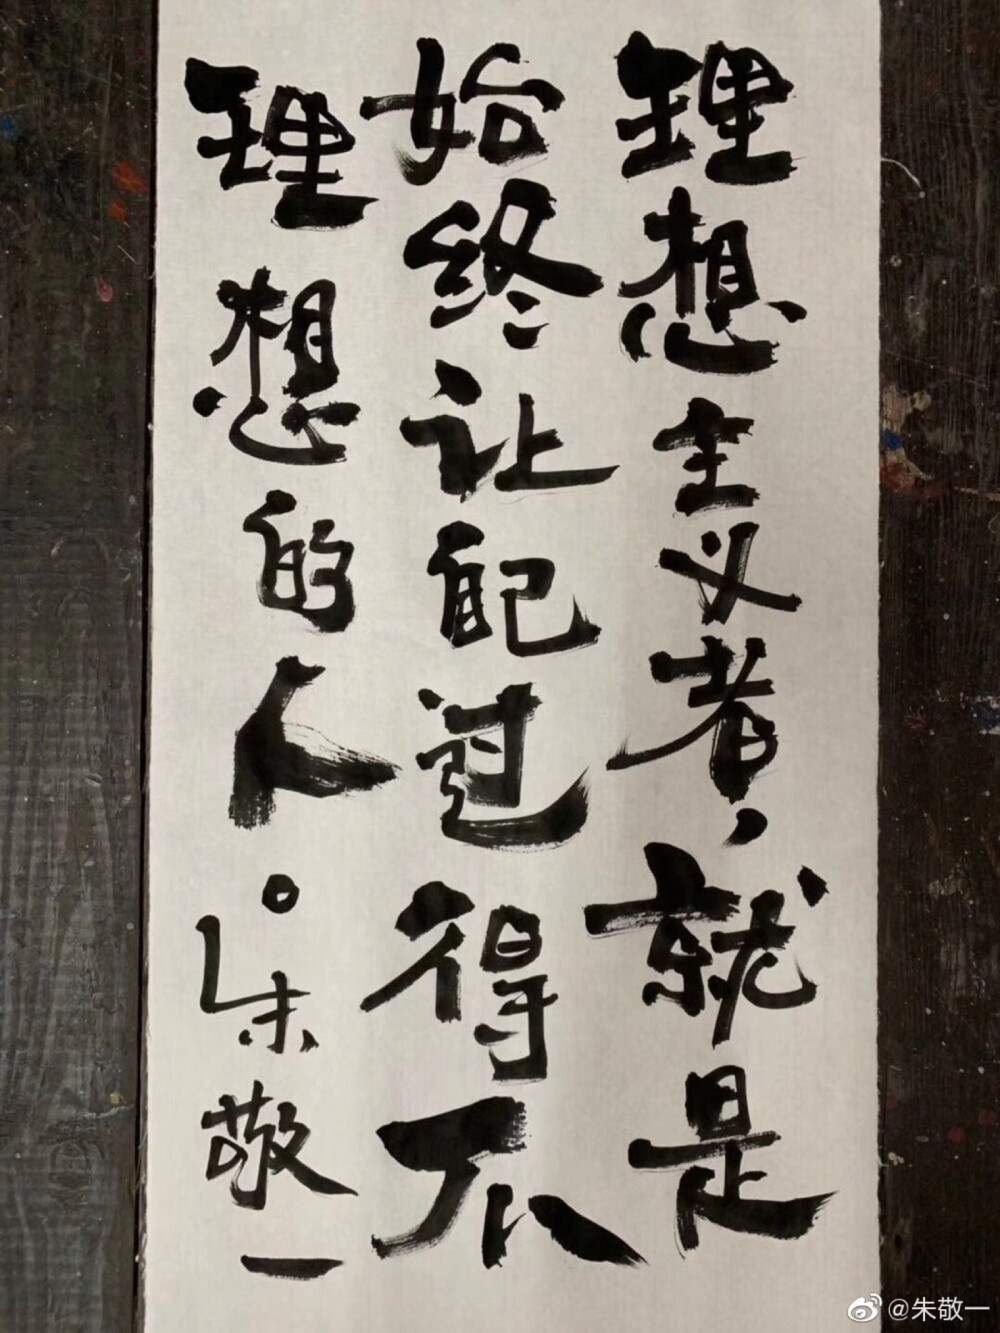 理想主义者，就是
始终让自己过得不
理想的人。朱敬一
@朱敬一